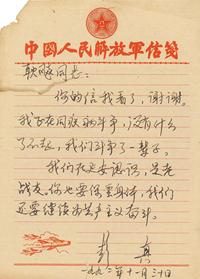 中國人民解放軍信箋
同志：
你的信我看了，谢谢。
我正在同疾病斗争，没有什么
了不起，我们斗争了一辈子。
我们在延安认识，是老
战友，你也要保重身体，我们
还要继续为共产主义奋斗。
彭真
一九九二年十一月三十日